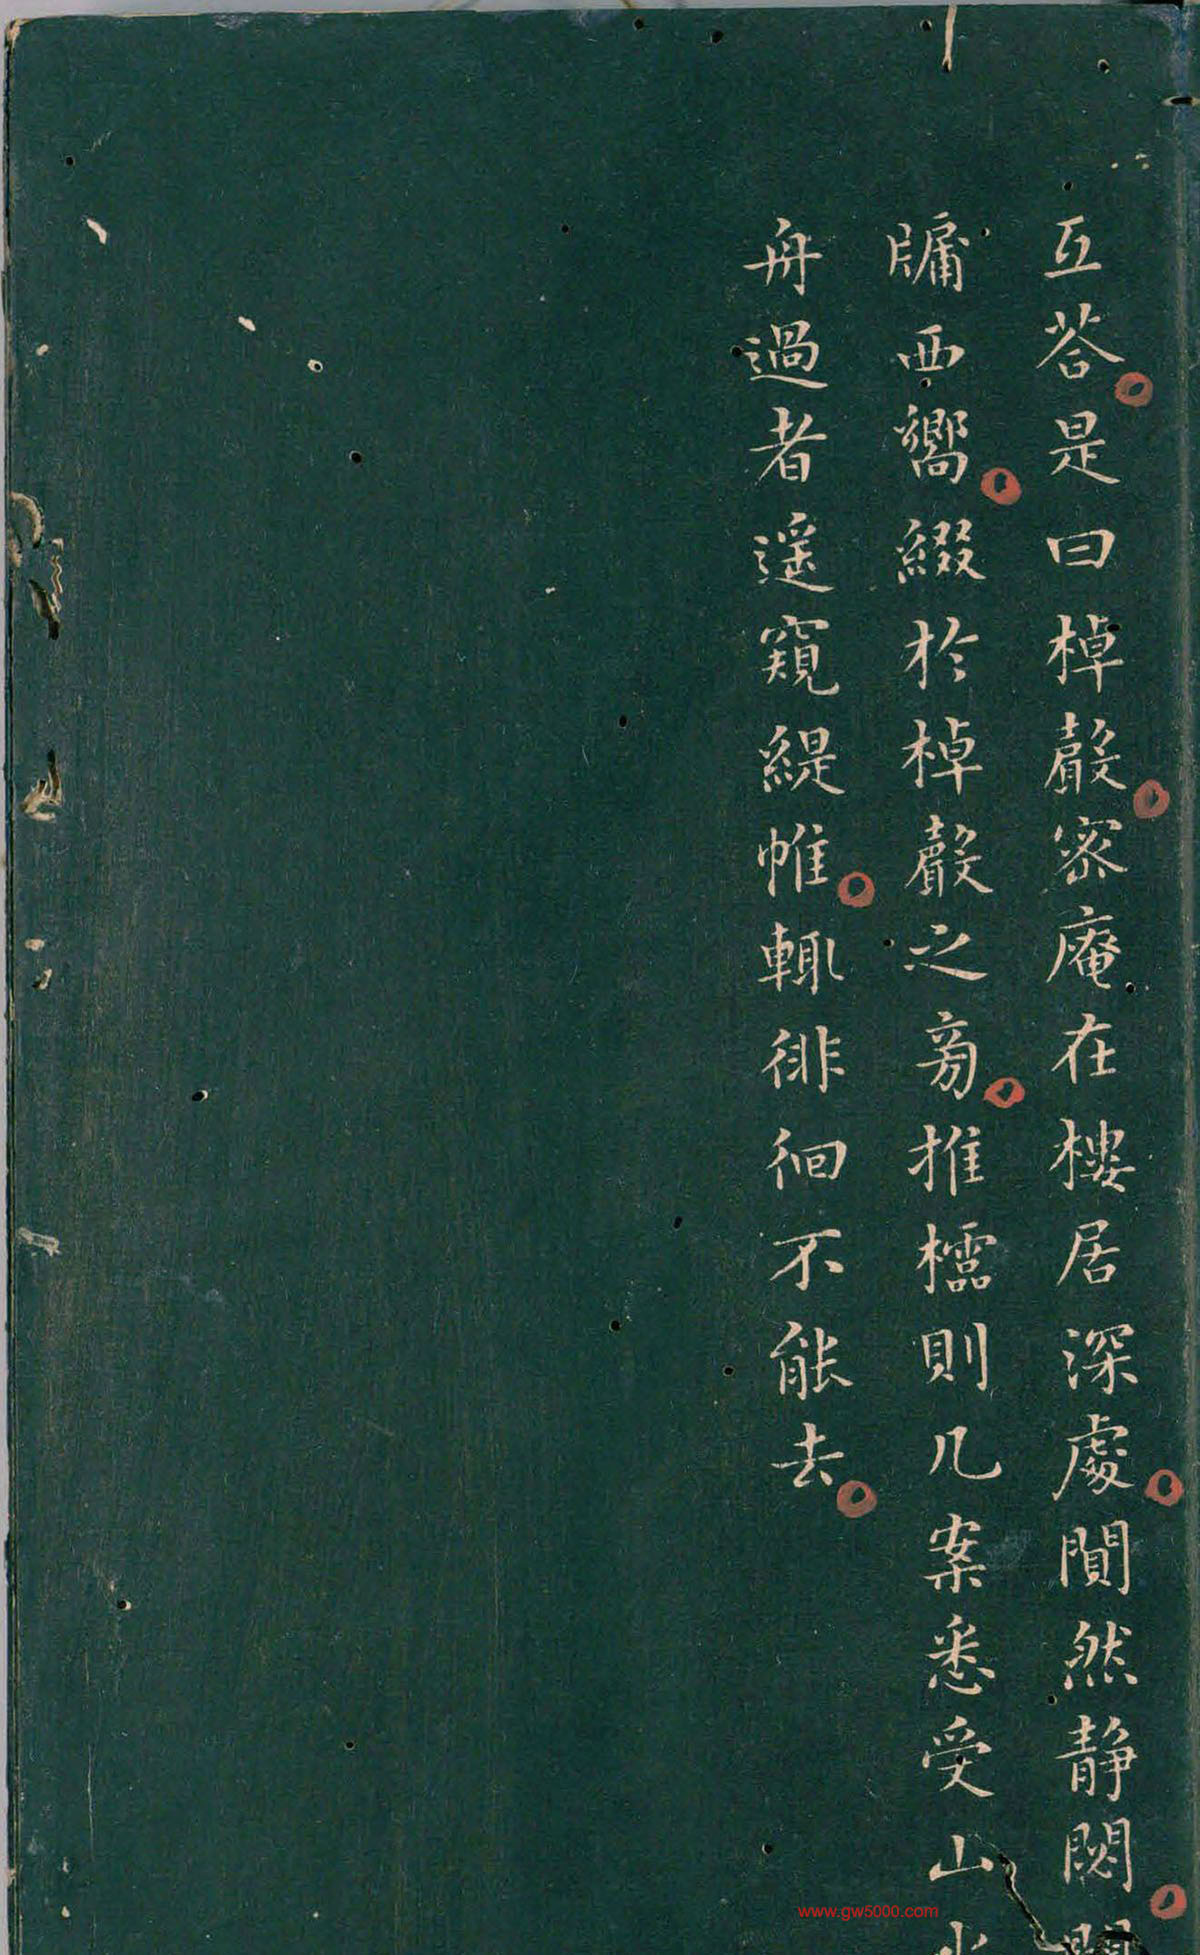 互荅是曰棹聲宻庵在樓居深處闃然静閟
牖西嚮綴於棹聲之旁推櫺則几案悉受山
舟過者遥窺緹帷輒徘徊不能去
www.gw5000.com